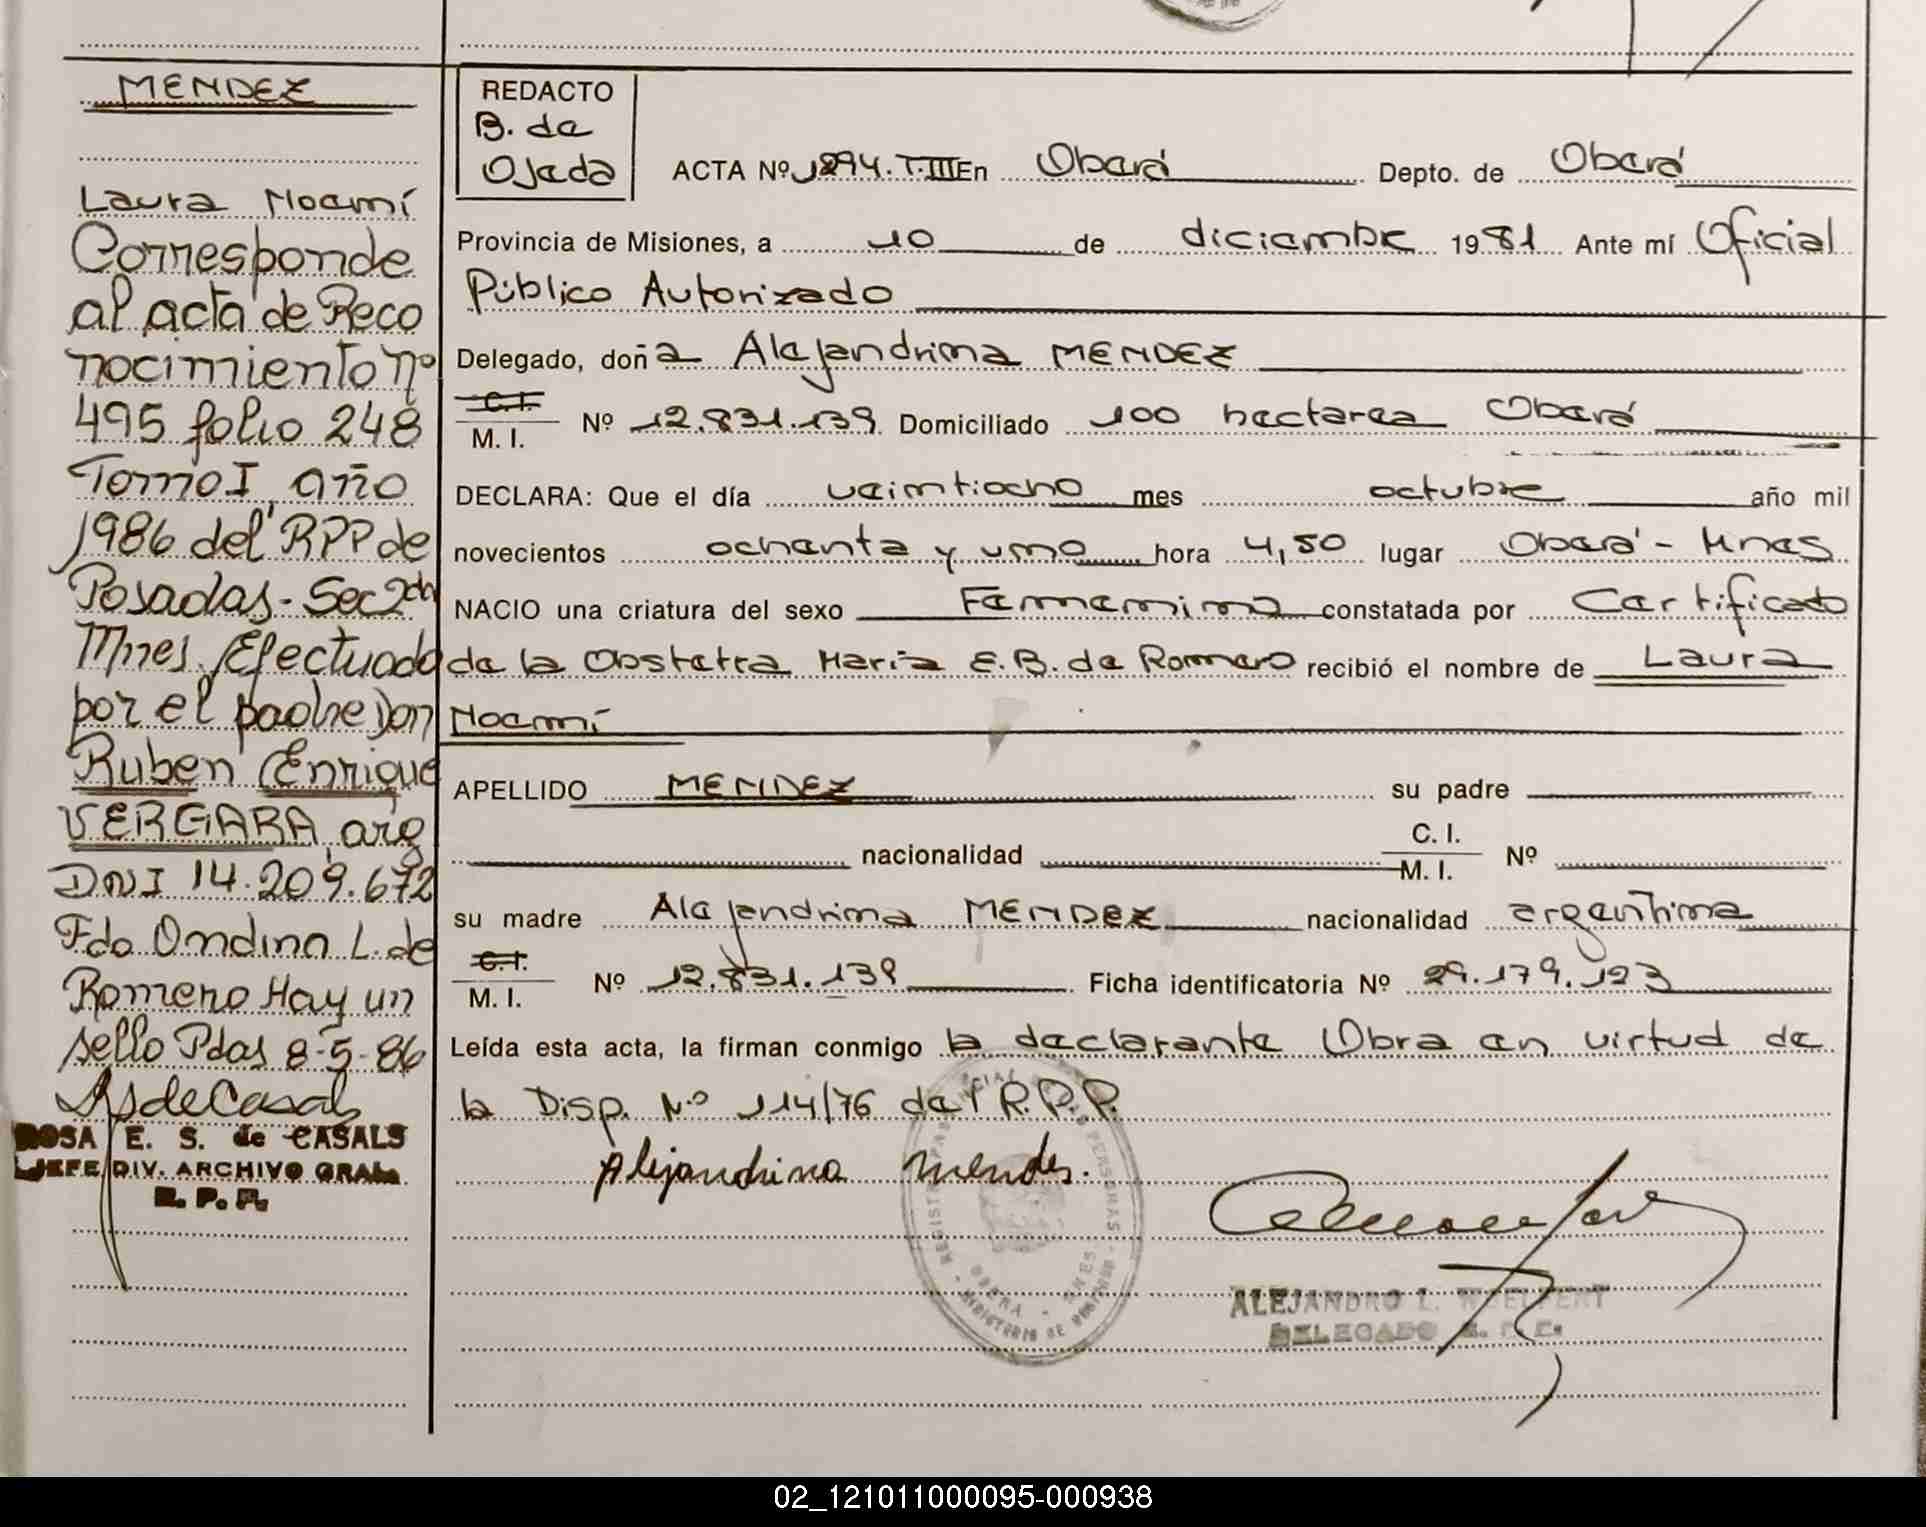 MENDEZ
Laura Noemí
Corresponde
al acta de Reco
nocimiento nº
495 folio 248
Tomo I año
1986 del RPP de
Posadas - Sec 2da
Mnes. Efectuado
por el padre Don
Ruben Enrique
VERGARA, arg
DNI 14.209.672
Fdo Ondina L. de
Romero Hay un
sello Pdas 8-5-86
ROSA E. S. de CASALS
JEFE DIV. ARCHIVO GRAL
R. P. P.
REDACTO
B. de
Ojeda
ACTA Nº 1294. T. III En Oberá Depto. de Oberá
Provincia de Misiones, a 10 de diciembre 1981 Ante mí Oficial
Público Autorizado
Delegado, doña Alejandrina MENDEZ
C. I.
M. I. Nº 12.831.139 Domiciliado 100 hectarea Oberá
DECLARA: Que el día veintiocho mes octubre año mil
novecientos ochenta y uno hora 4,50 lugar Oberá - Mnes
NACIO una criatura del sexo Femenino constatada por Certificado
de la Obstetra María E. B. de Romero recibió el nombre de Laura
Noemí
APELLIDO MENDEZ su padre
nacionalidad C. I.
M. I. Nº
su madre Alejandrina MENDEZ nacionalidad argentina
C. I.
M. I. Nº 12.831.139 Ficha identificatoria Nº 29.179.123
Leída esta acta, la firman conmigo la declarante Obra en virtud de
la Disp. N.º 114/76 del R.P.P.
Alejandrina Mendes.
ALEJANDRO L. WOELFERT
DELEGADO R. P. P.
02_121011000095-000938